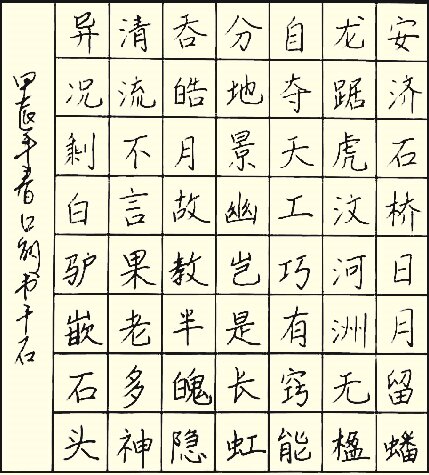 安济石桥日月留蟠
龙踞虎汶河洲无楹
自夺天工巧有窍能
分地景幽岂是长虹
吞皓月故教半魄隐
清流不言果老多神
异况剩白驴嵌石头
甲辰年春日钢书于石